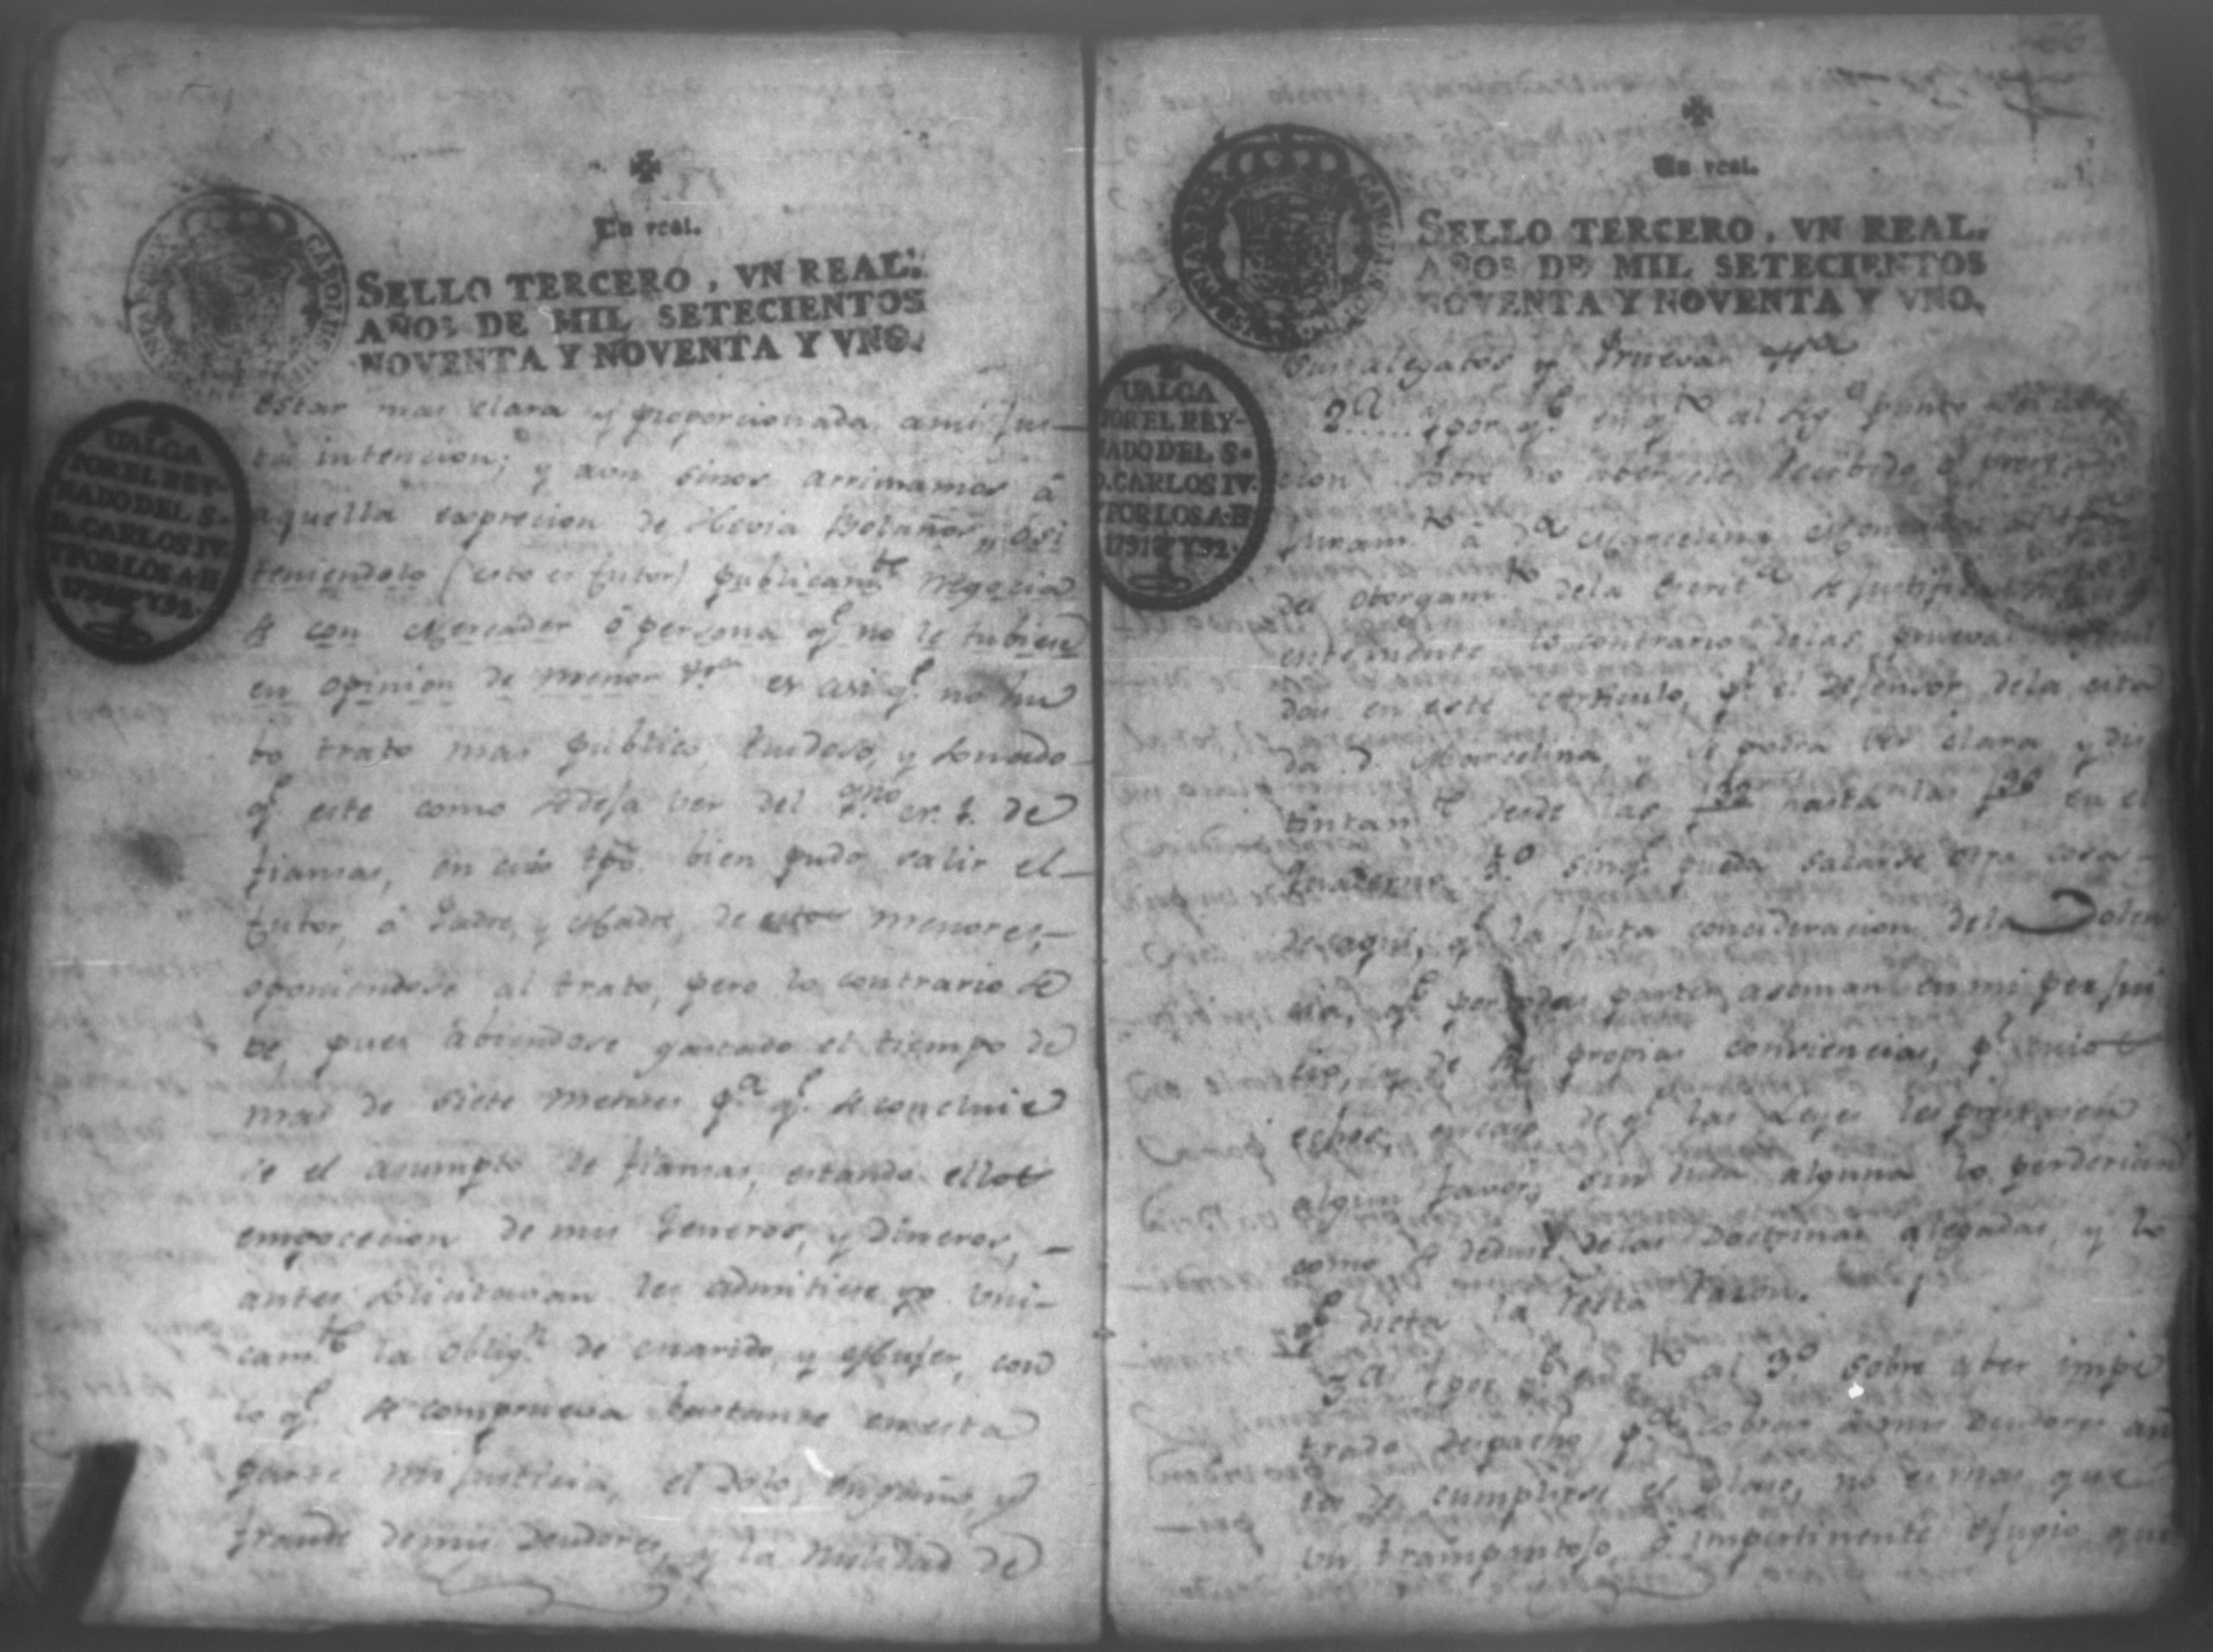 Un real.
SELLO TERCERO, VN REAL.
AÑOS DE MIL SETECIENTOS
NOVENTA Y NOVENTA Y VNO.
VALGA
POR EL REY-
NADO DEL S.
D. CARLOS IV.
Y POR LOS A.
1791 Y 92.
estar mas clara y proporcionada ami jus-
ta intencion; y aon sinos arrimamos â
aquella exprecion de Hevia Bolaños, ô si
teniendolo (esto es tutor) publicamte negocia
se con Mercader ô persona qe no le tubiese
en opinion de menor es asi qe no hu
bo trato mas publico, ruidoso, y sonado
qe este como se deja ver del
fianzas, en cuio tpo. bien pudo salir el
tutor, ô Padre, y Madre, de estos menores,
oponiendose al trato, pero lo contrario se
ve, pues abiendose gastado el tiempo de
mas de siete meses pa qe se concluie
se el asumpto de fianzas, estando ellos
en poсecion de mis generos, y dineros,
antes solicitavan les admitiese yo vni-
camte la oblign de marido, y Mujer, con
lo qe se comprueva bastante en esta
parte mi justicia, el dolo, engaño, y
fraude de mis deudores, y la nulidad de
Un real.
SELLO TERCERO, VN REAL.
AÑOS DE MIL SETECIENTOS
NOVENTA Y NOVENTA Y VNO.
VALGA
POR EL REY-
NADO DEL S.
D. CARLOS IV.
Y POR LOS A.
1791 Y 92.
sus alegatos y prueva
2a por qe en qto al sego punto
cion sobre no abersele recibido el
juramto a Da Marcelina
del otorgamto dela Escrita se justifica
entemente lo contrario delas pruevas
das en este articulo, pr el Defensor dela cita
da Da Marcelina, y se podra ver clara y dis
tintamte desde las hasta las en el
Quaderno sin qe pueda sacarse otra cosa
de aqui, qe la justa concideracion dela Dolen
cia, qe por todas partes asoman en mi perjui
cio, y de sus propias conviencias, pr cuios
echos, en caso de qe las Leyes les prestasen
algun favor, sin duda alguna lo perderian
como se deduce delas Doctrinas alegadas, y lo
qe dicta la recta razon.
3a por qe en qto al 3o sobre aber impe
trado Despacho pa cobrar a mis Deudores an
tes de cumplirse el plaso, no es mas que
un trampantojo, ô impertinente efugio que